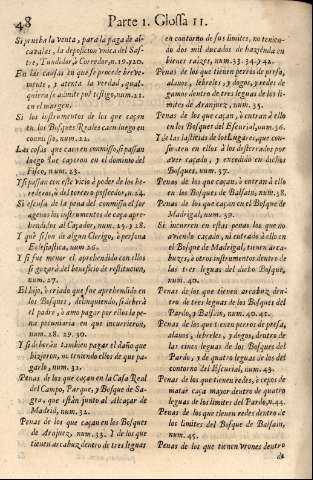 48 Parte 1. Glossa 11.
Si prueba la venta, para la paga de al-
cavalas, la deposicion vnica del Sas-
tre, Tundidor, ò Corredor, n. 19. y 20.
En las causas en que se procede breve-
mente, y atenta la verdad, qual-
quiera se admite por testigo, num. 21.
en el margen.
Si los instrumentos de los que caçan
en los Bosques Reales caen luego en
commisso, num. 22.
Las cosas que caen en commisso, si passan
luego que cayeron en el dominio del
Fisco, num. 23.
Y si passan con este vicio à poder de los he-
rederos, ò del tercero posseedor, n. 24.
Si escusa de la pena del commisso el ser
agenos los instrumentos de caça apre-
hendidos al Caçador, num. 25. y 28.
Y què si son de algun Clerigo, ò persona
Eclesiastica, num 26.
Y si fue menor el aprehendido con ellos
si gozarà del beneficio de restitucion,
num. 27.
El hijo, ò criado que fue aprehendido en
los Bosques, delinquiendo, si deberà
el padre, ò amo pagar por ellos la pe-
na pecuniaria en que incurrieron,
num. 28. 29. 30.
Y si deberàn tambien pagar el daño que
hizieron, no teniendo ellos de que pa-
garlo, num. 31.
Penas de los que caçan en la Casa Real
del Campo, Parque, y Bosque de Sa-
gra, que estàn junto al Alcaçar de
Madrid, num. 32.
Penas de los que caçan en los Bosques
de Arojuez, num. 33. Y de los que
tienen arcabuz dentro de tres leguas
en contorno de sus limites, no tenien-
do dos mil ducados de hazienda en
bienes raizes, num. 33. 34. y 42.
Penas de los que tienen perros de presa,
alanos, lebreles, y dogos, redes de
gamos dentro de tres leguas de los li-
mites de Aranjuez, num. 35.
Penas de los que caçan, ò entran à ello
en los Bosques del Escurial, num. 36.
Y de las Iusticias de los Lugares, que con-
sienten en ellos à los desterrados por
aver caçado, y encendido en dichos
Bosques, num. 37.
Penas de los que caçan, ò entran à ello
en los Bosques de Balsain, num. 38.
Penas de los que caçan en el Bosque de
Madrigal, num. 39.
Si incurren en estas penas los que no
aviendo caçado, ni entrado à ello en
el Bosque de Madrigal, tienen arca-
buzes, ò otros instrumentos dentro de
las tres leguas del dicho Bosque,
num. 40.
Penas de los que tienen arcabuz den-
tro de tres leguas de los Bosques del
Pardo, y Balsain, num. 40. 41.
Penas de los que tienen perros de presa,
alanos, lebreles, y dogos, dentro de
las cinco leguas de los Bosques del
Pardo, y de quatro leguas de los del
contorno del Escurial, num. 43.
Penas de los que tienen redes, ò cepos de
matar caça mayor dentro de quatro
leguas de los limites del Pardo, n. 44.
Penas de los que tienen redes dentro de
los limites del Bosque de Balsain,
num. 45.
Penas de los que tienen vrones dentro
de